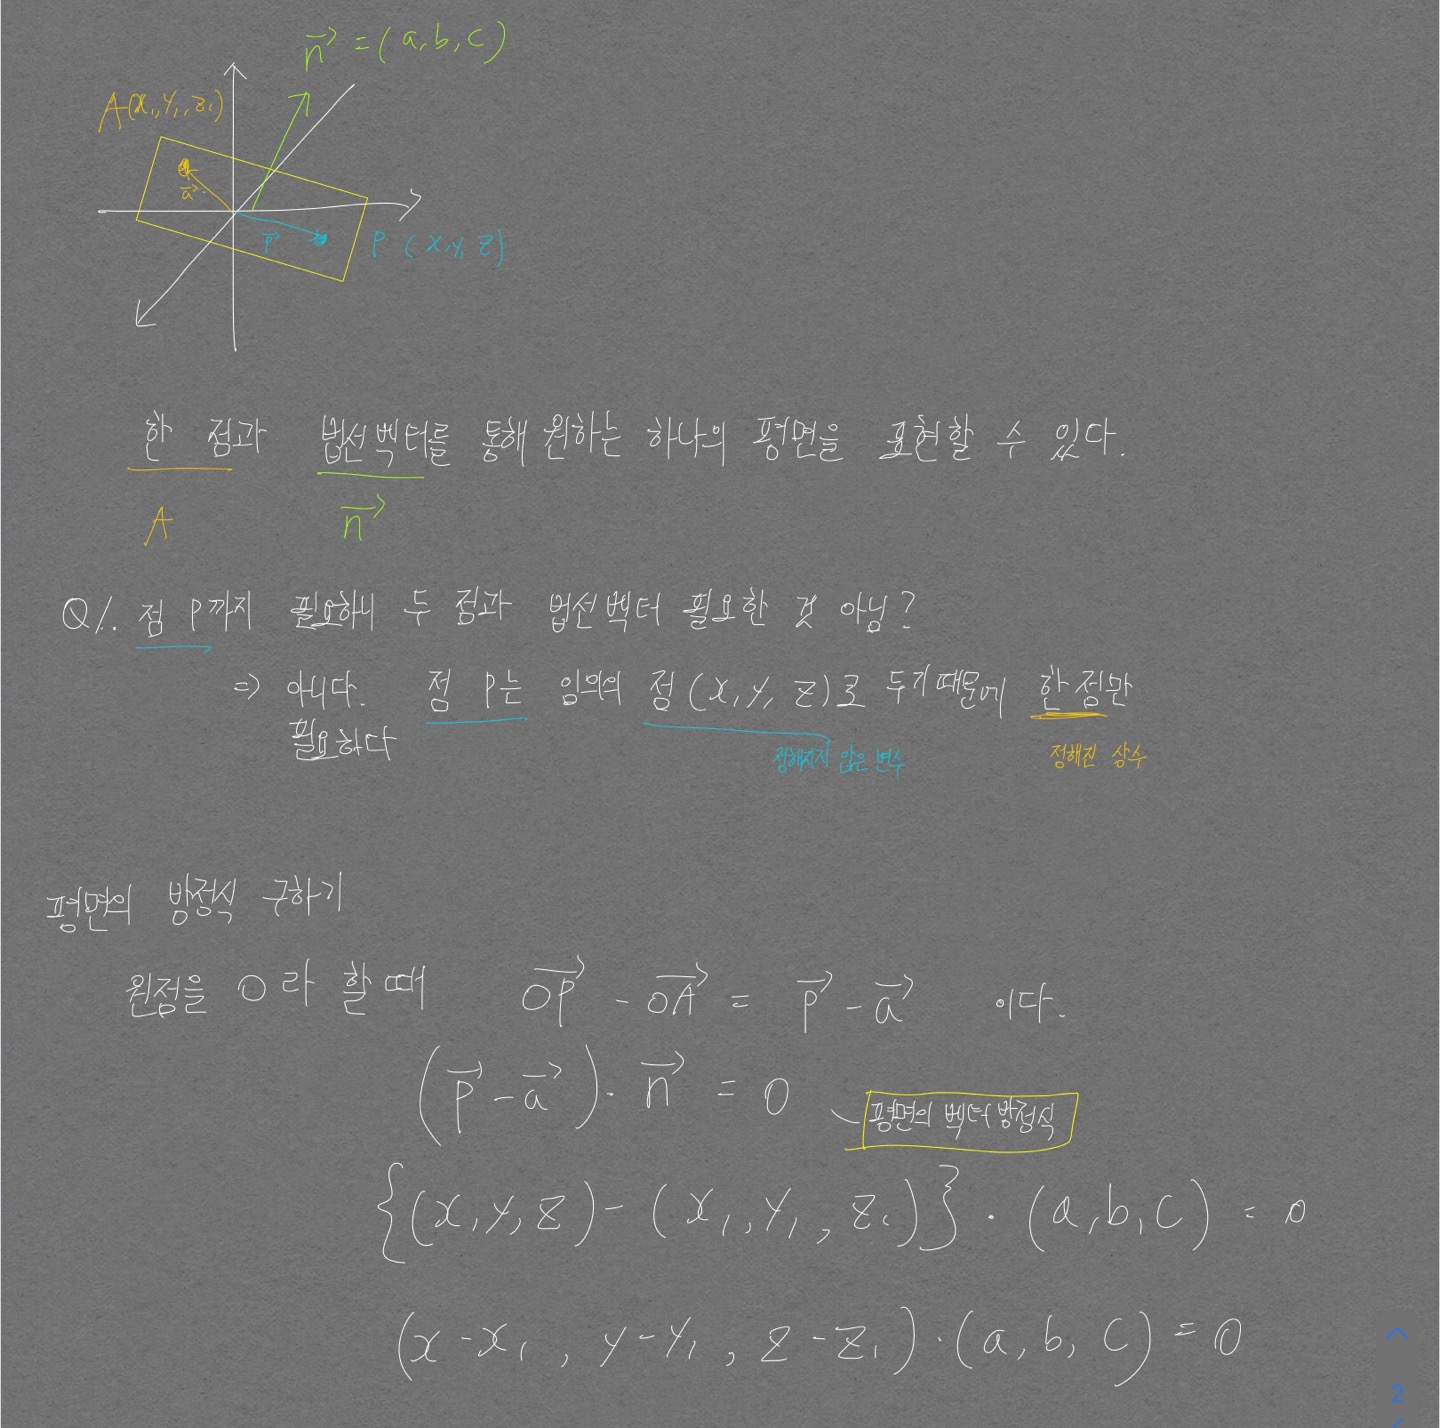 n⃗ = (a, b, c)
A(x₁, y₁, z₁)
a⃗
p⃗
P (x, y, z)
한 점과 법선벡터를 통해 원하는 하나의 평면을 표현할 수 있다.
A n⃗
Q/. 점 P까지 필요하니 두 점과 법선벡터 필요한 것 아님?
⇒ 아니다. 점 P는 임의의 점 (x, y, z)로 두기 때문에 한 점만
필요하다
정해지지 않은 변수 정해진 상수
평면의 방정식 구하기
원점을 O라 할 때 OP⃗ - OA⃗ = p⃗ - a⃗ 이다.
(p⃗ - a⃗) · n⃗ = 0
평면의 벡터 방정식
{(x, y, z) - (x₁, y₁, z₁)} · (a, b, c) = 0
(x - x₁, y - y₁, z - z₁) · (a, b, c) = 0
2